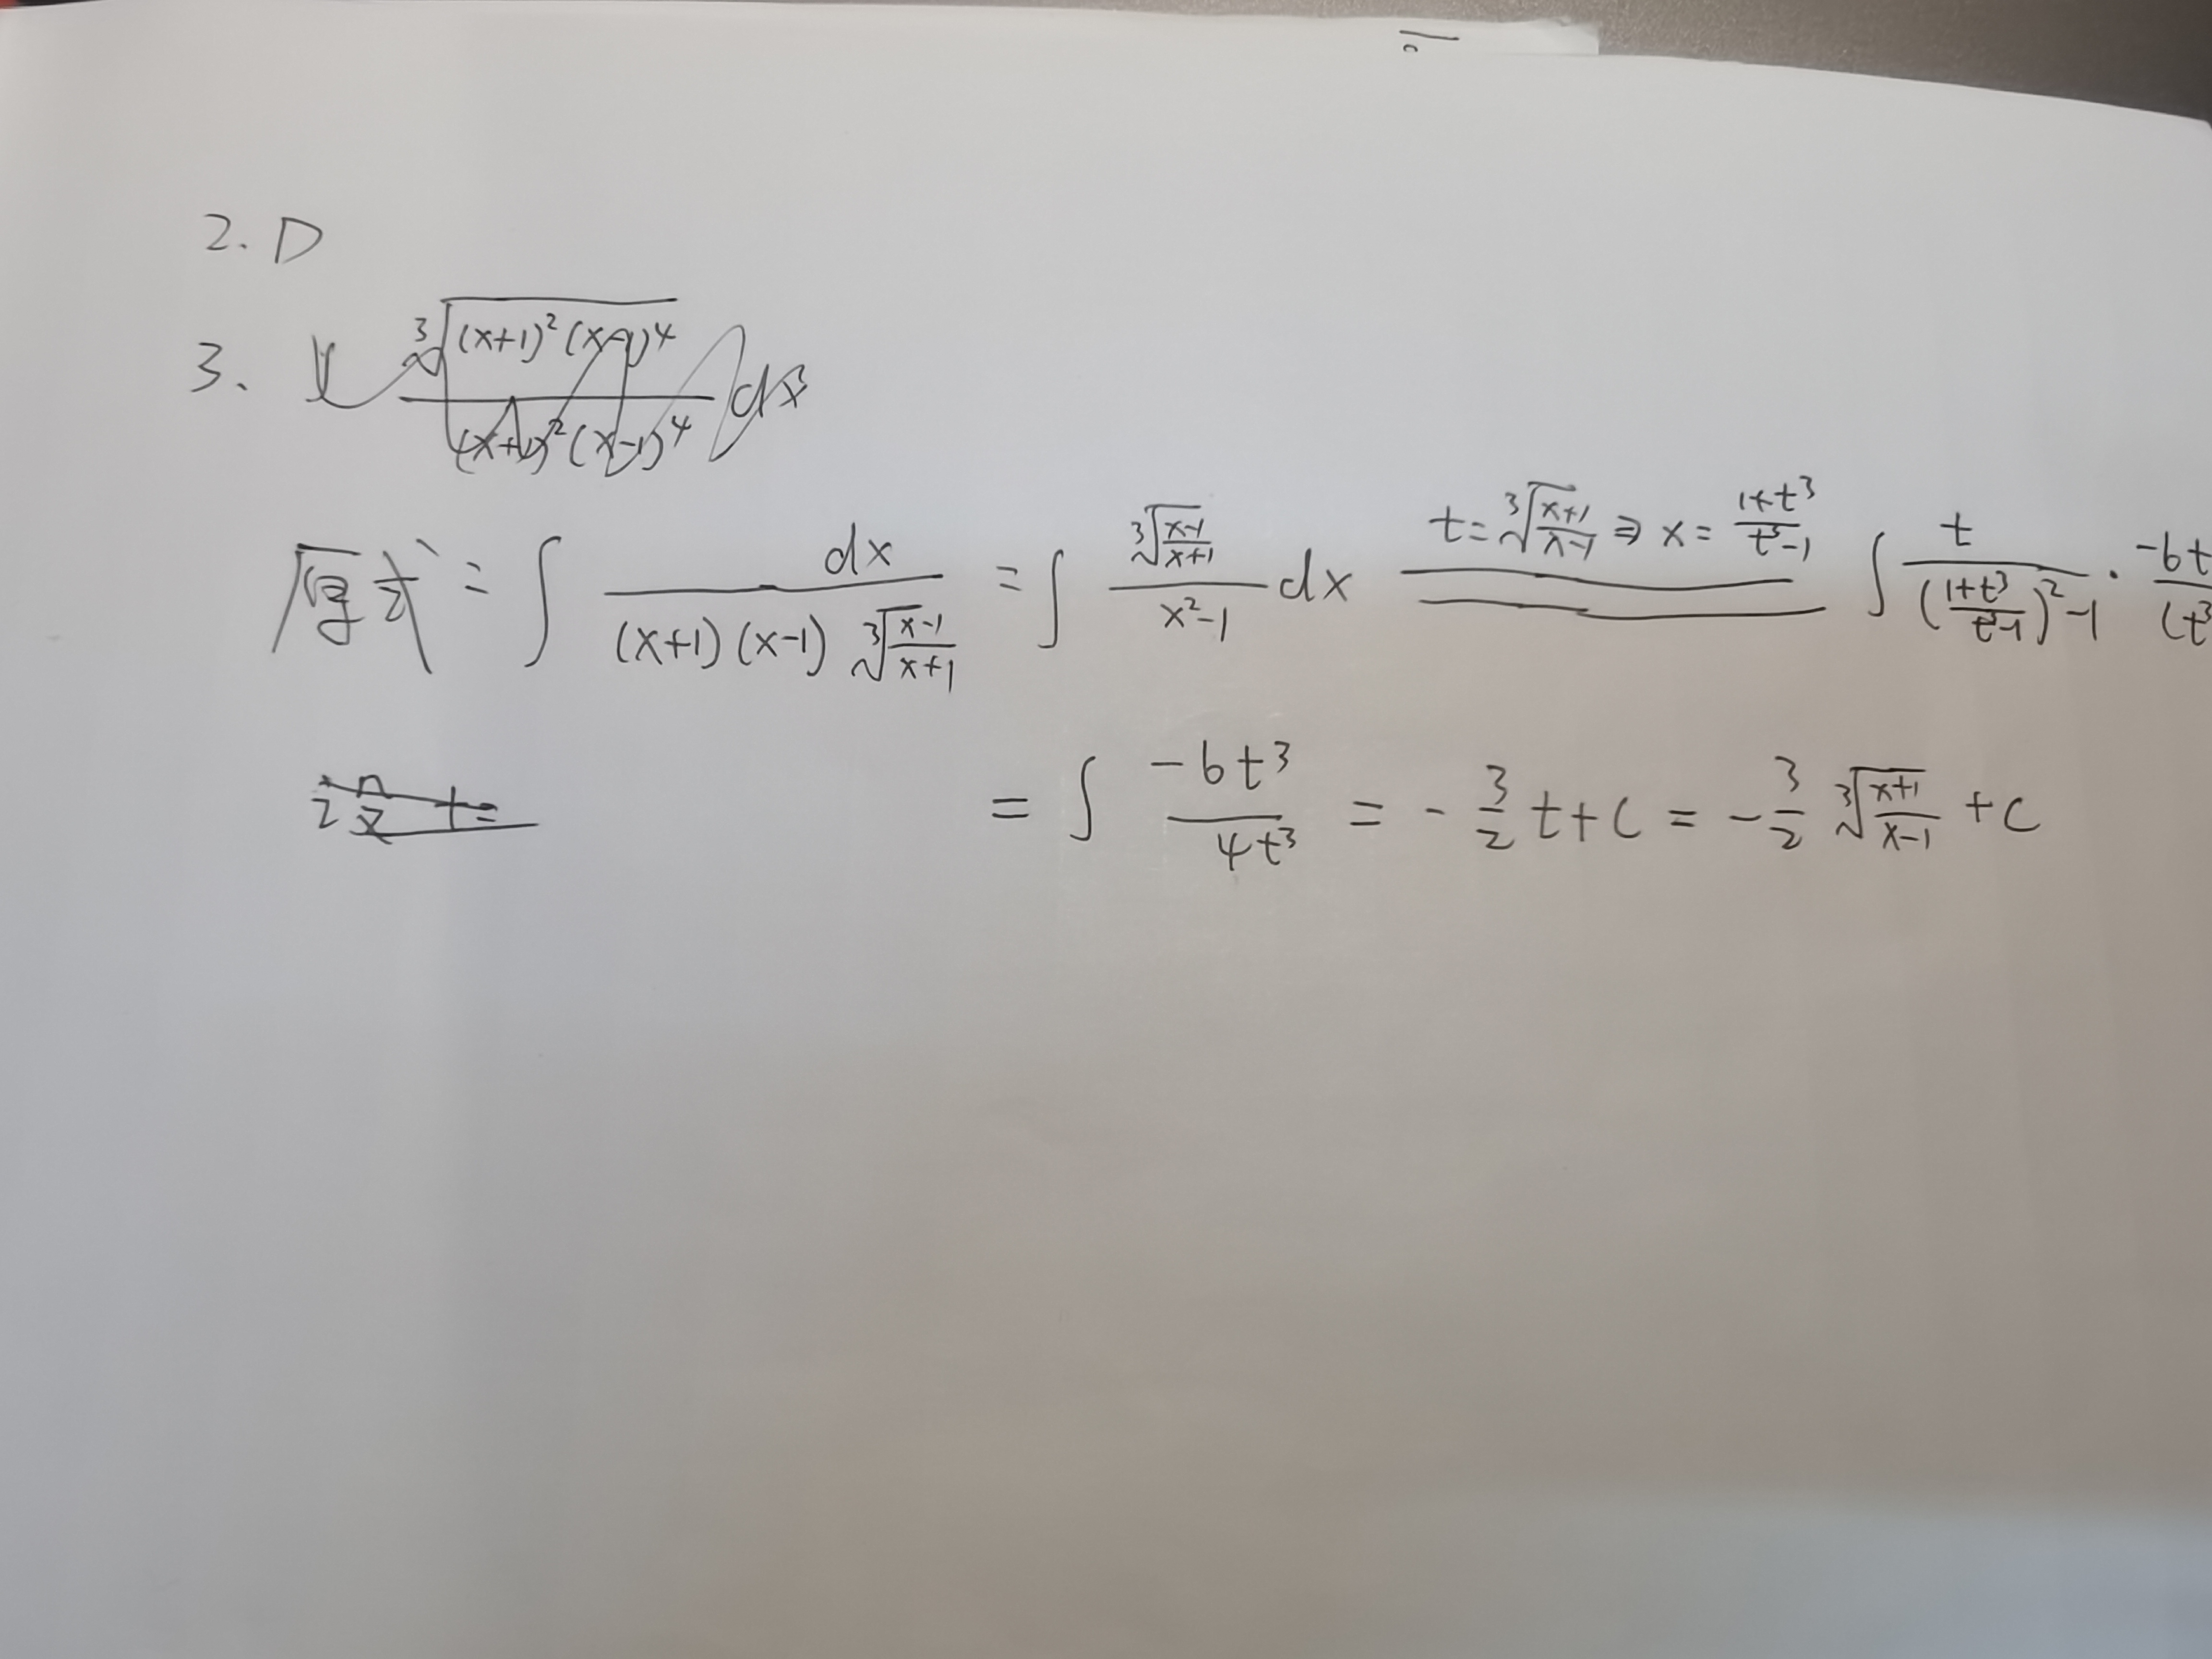 2. D
3. ∫ ∛((x+1)²(x-1)⁴) / ((x+1)²(x-1)⁴) dx
原式 = ∫ dx / ((x+1)(x-1) ∛((x-1)/(x+1))) = ∫ ∛((x-1)/(x+1)) / (x²-1) dx t=∛((x+1)/(x-1)) ⇒ x = (1+t³)/(t³-1) ∫ t / (((1+t³)/(t³-1))²-1) · -6t / (t³
= ∫ -6t³/4t³ = -3/2 t+C = -3/2 ∛((x+1)/(x-1)) +C